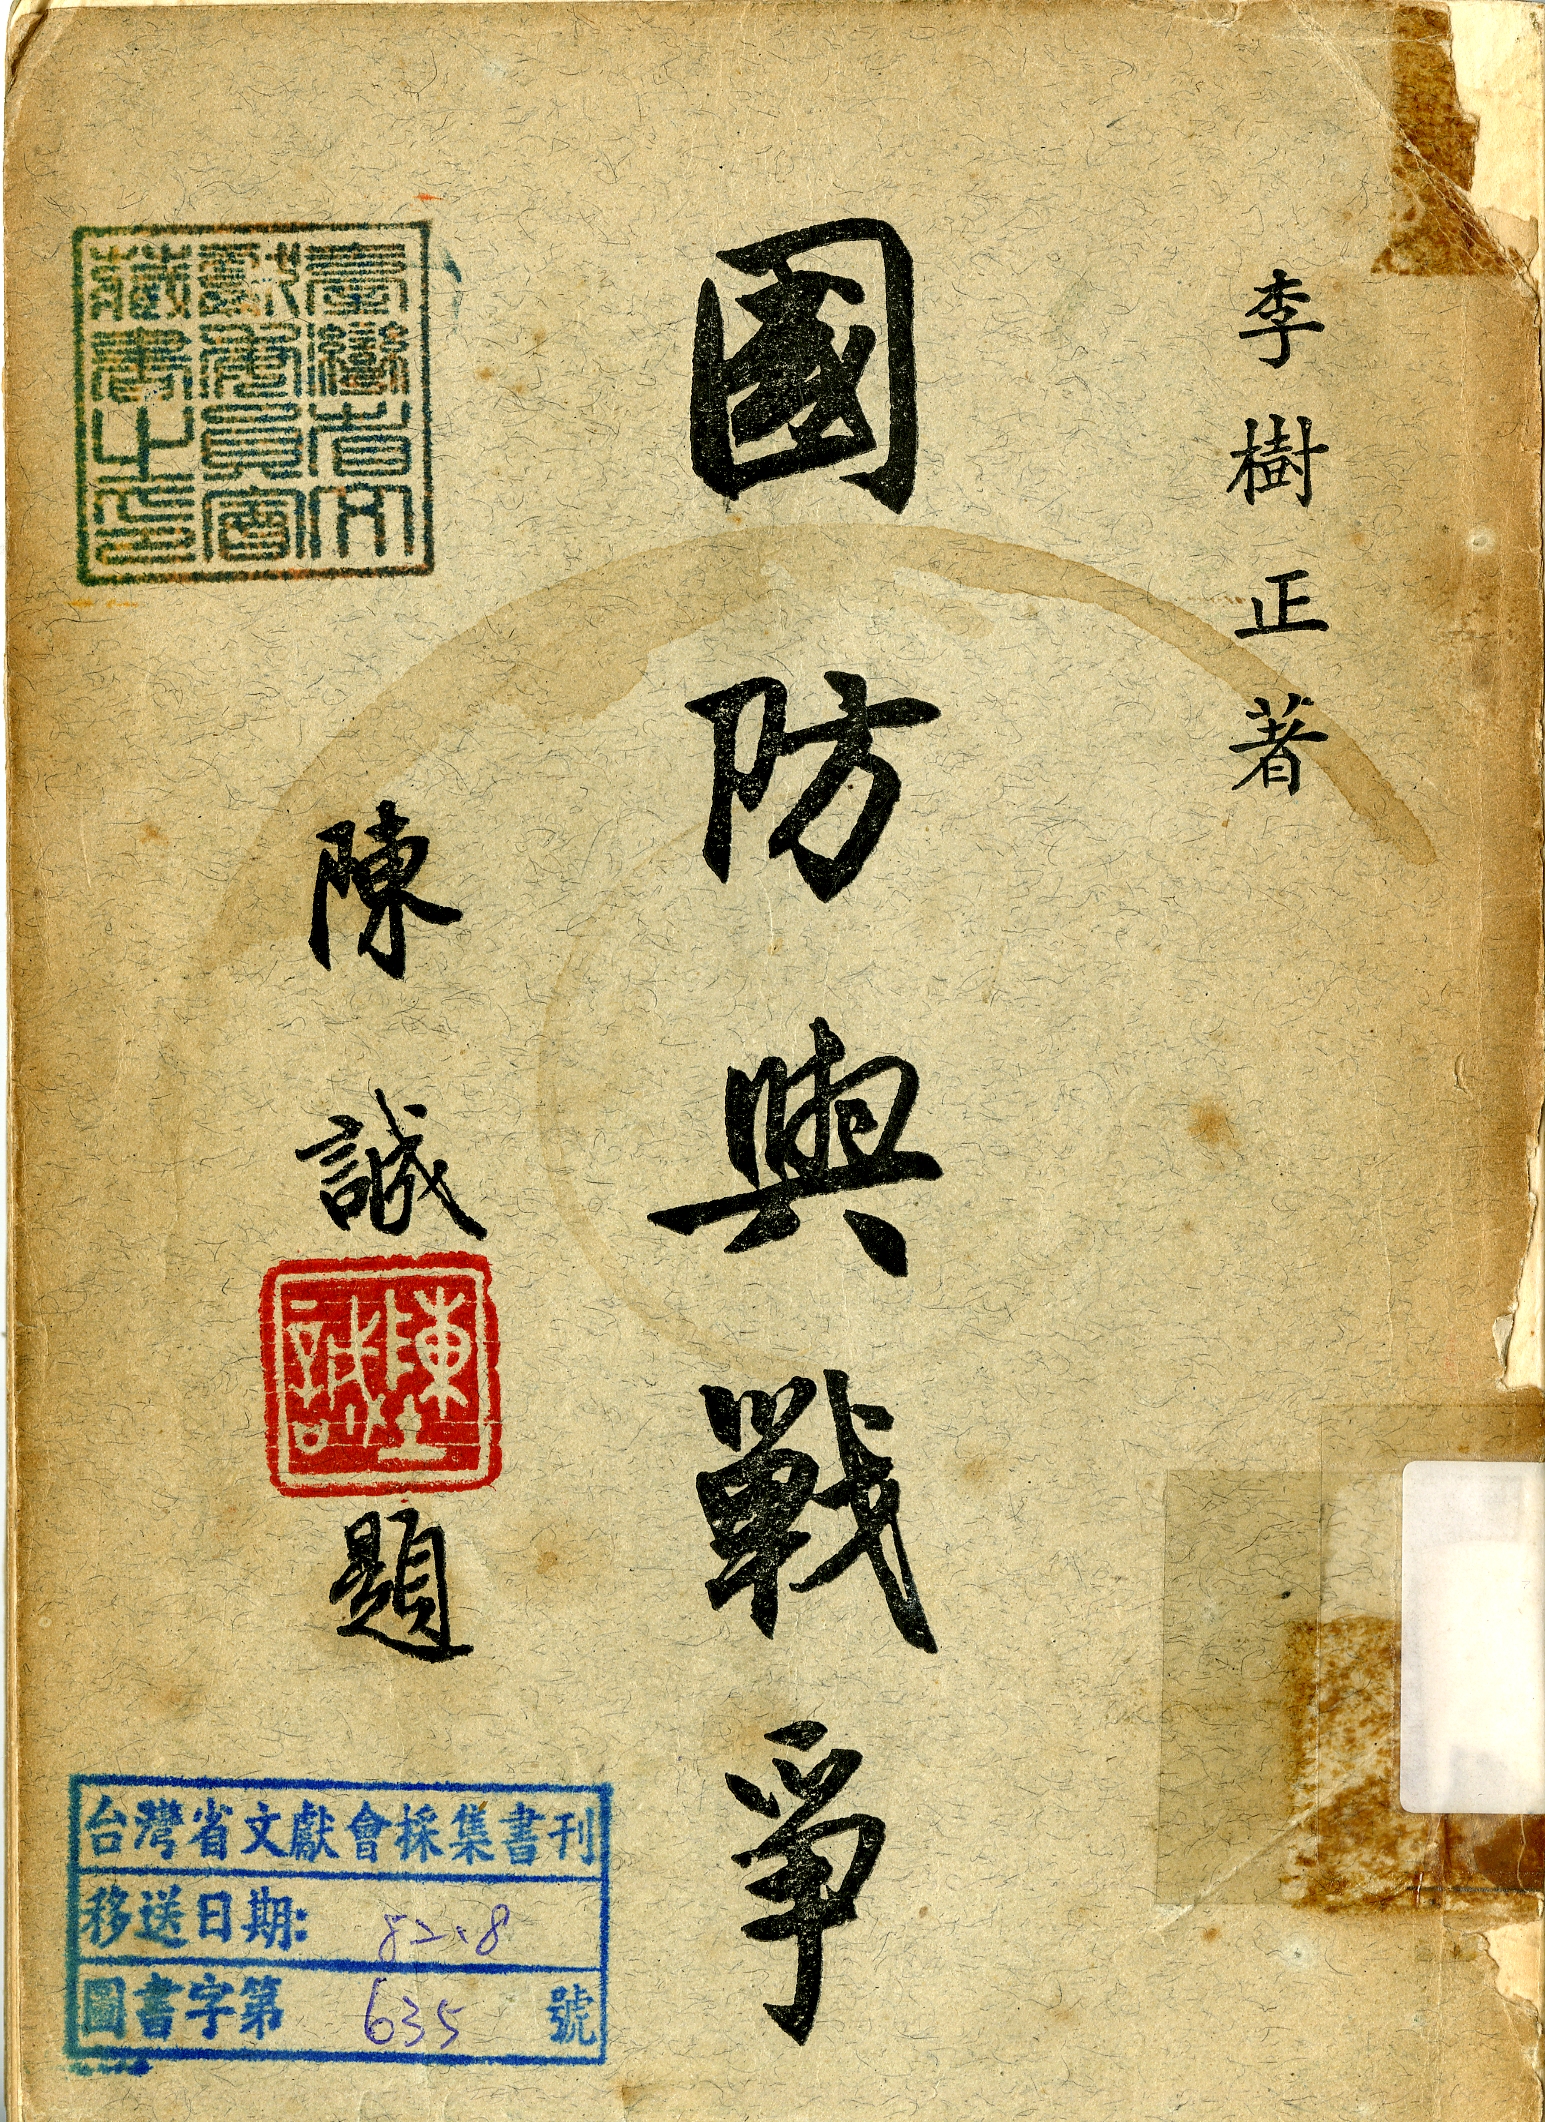 李樹正著
國防與戰爭
陳誠
陳誠
題
臺灣省文
獻委員會
藏書之印
台灣省文獻會採集書刊
移送日期: 82.8
圖書字第 635 號